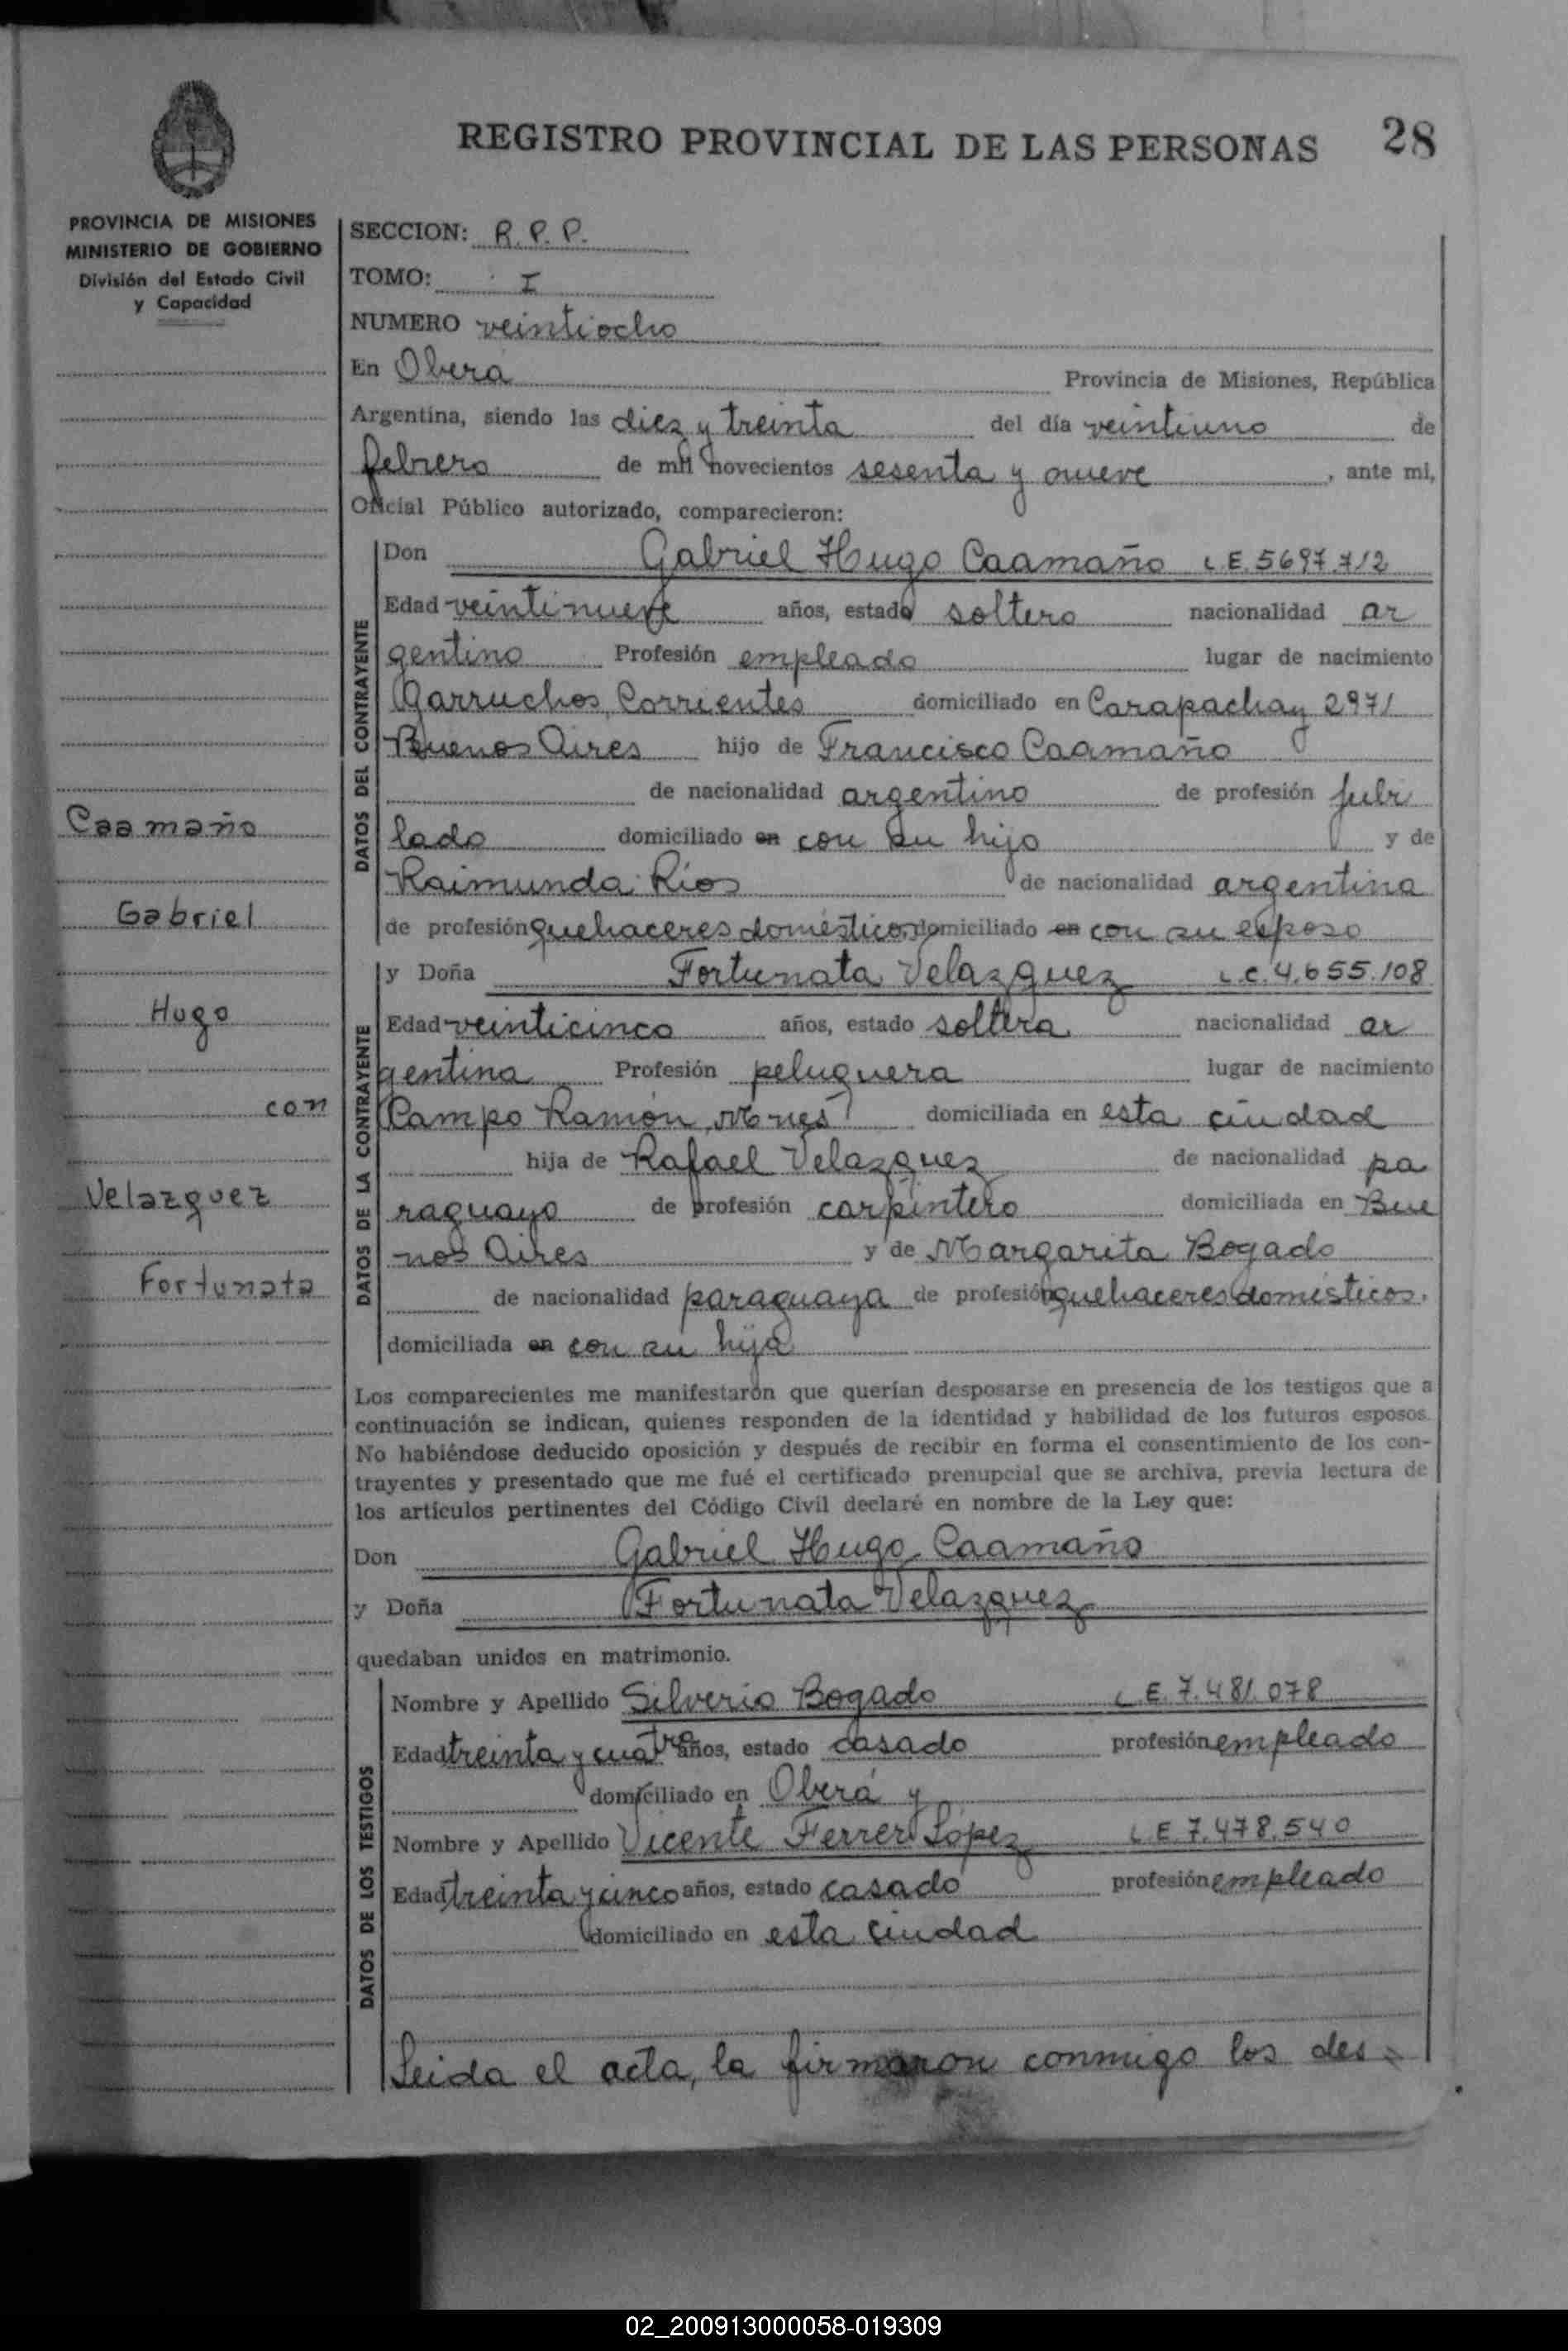 REGISTRO PROVINCIAL DE LAS PERSONAS 28
PROVINCIA DE MISIONES
MINISTERIO DE GOBIERNO
División del Estado Civil
y Capacidad
Caamaño
Gabriel
Hugo
con
Velazquez
Fortunata
SECCION: R. P. P.
TOMO: I
NUMERO veintiocho
En Oberá Provincia de Misiones, República
Argentina, siendo las diez y treinta del día veintiuno de
febrero de mil novecientos sesenta y nueve, ante mi,
Oficial Público autorizado, comparecieron:
DATOS DEL CONTRAYENTE
Don Gabriel Hugo Caamaño L.E. 5697.712
Edad veintinueve años, estado soltero nacionalidad ar
gentino Profesión empleado lugar de nacimiento
Garruchos, Corrientes domiciliado en Carapachay 2971
Buenos Aires hijo de Francisco Caamaño
de nacionalidad argentino de profesión jubi
lado domiciliado en con su hijo y de
Raimunda Rios de nacionalidad argentina
de profesión quehaceres domésticos, domiciliado en con su esposo
DATOS DE LA CONTRAYENTE
y Doña Fortunata Velazquez L.C. 4.655.108
Edad veinticinco años, estado soltera nacionalidad ar
gentina Profesión peluquera lugar de nacimiento
Campo Ramón, Mnes domiciliada en esta ciudad
hija de Rafael Velazquez de nacionalidad pa
raguayo de profesión carpintero domiciliada en Bue
nos Aires y de Margarita Bogado
de nacionalidad paraguaya de profesión quehaceres domésticos.
domiciliada en con su hija
Los comparecientes me manifestarón que querían desposarse en presencia de los testigos que a
continuación se indican, quienes responden de la identidad y habilidad de los futuros esposos.
No habiéndose deducido oposición y después de recibir en forma el consentimiento de los con-
trayentes y presentado que me fué el certificado prenupcial que se archiva, previa lectura de
los artículos pertinentes del Código Civil declaré en nombre de la Ley que:
Don Gabriel Hugo Caamaño
y Doña Fortunata Velazquez
quedaban unidos en matrimonio.
DATOS DE LOS TESTIGOS
Nombre y Apellido Silverio Bogado L.E. 7.481.078
Edad treinta y cuatro años, estado casado profesión empleado
domiciliado en Oberá y
Nombre y Apellido Vicente Ferrer López L.E. 7.478.540
Edad treinta y cinco años, estado casado profesión empleado
domiciliado en esta ciudad
Leida el acta, la firmaron conmigo los des-
02_200913000058-019309